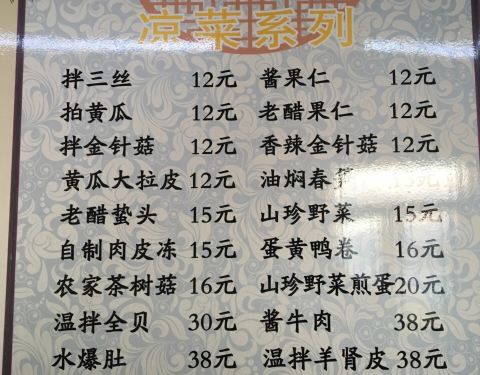 凉菜系列
拌三丝 12元 酱果仁 12元
拍黄瓜 12元 老醋果仁 12元
拌金针菇 12元 香辣金针菇 12元
黄瓜大拉皮 12元 油焖春
老醋蛰头 15元 山珍野菜 15元
自制肉皮冻 15元 蛋黄鸭卷 16元
农家茶树菇 16元 山珍野菜煎蛋 20元
温拌全贝 30元 酱牛肉 38元
水爆肚 38元 温拌羊肾皮 38元